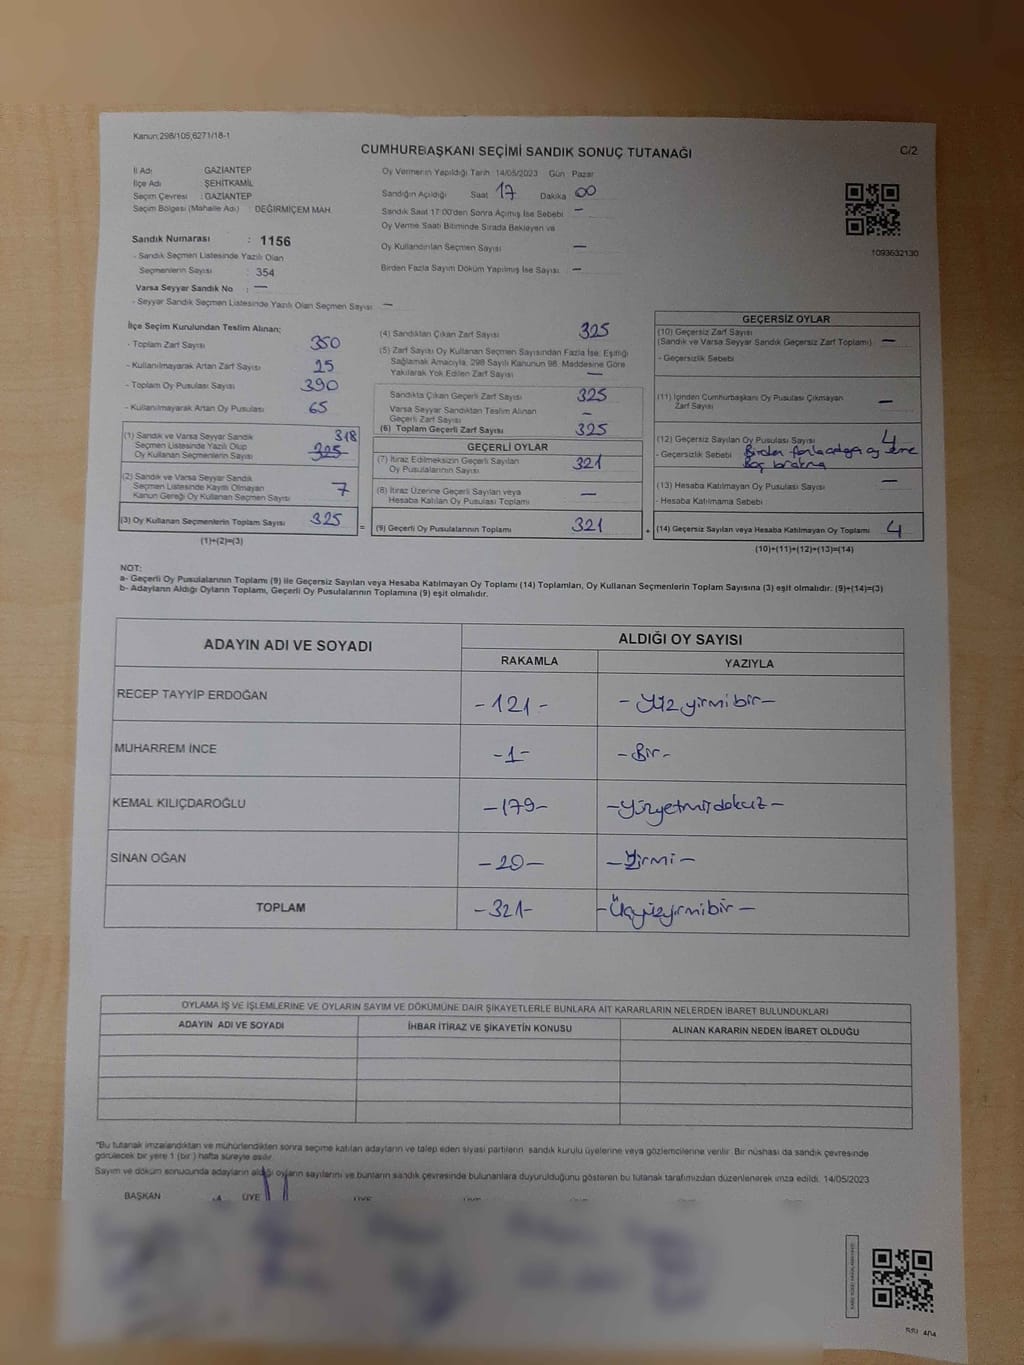 Kanun:298/105,6271/18-1
CUMHURBAŞKANI SEÇİMİ SANDIK SONUÇ TUTANAĞI
C/2
İl Adı GAZİANTEP
İlçe Adı ŞEHİTKAMİL
Seçim Çevresi : GAZİANTEP
Seçim Bölgesi (Mahalle Adı) : DEĞİRMİÇEM MAH.
Sandık Numarası : 1156
- Sandık Seçmen Listesinde Yazılı Olan
Seçmenlerin Sayısı : 354
Varsa Seyyar Sandık No : —
- Seyyar Sandık Seçmen Listesinde Yazılı Olan Seçmen Sayısı —
Oy Vermenin Yapıldığı Tarih 14/05/2023 Gün Pazar
Sandığın Açıldığı Saat 17 Dakika 00
Sandık Saat 17:00'den Sonra Açılmış İse Sebebi —
Oy Verme Saati Bitiminde Sırada Bekleyen ve
Oy Kullandırılan Seçmen Sayısı —
Birden Fazla Sayım Döküm Yapılmış İse Sayısı —
1093632130
İlçe Seçim Kurulundan Teslim Alınan;
- Toplam Zarf Sayısı 350
- Kullanılmayarak Artan Zarf Sayısı 25
- Toplam Oy Pusulası Sayısı 390
- Kullanılmayarak Artan Oy Pusulası 65
(1) Sandık ve Varsa Seyyar Sandık 318
Seçmen Listesinde Yazılı Olup
Oy Kullanan Seçmenlerin Sayısı 325
(2) Sandık ve Varsa Seyyar Sandık
Seçmen Listesinde Kayıtlı Olmayan
Kanun Gereği Oy Kullanan Seçmen Sayısı 7
(3) Oy Kullanan Seçmenlerin Toplam Sayısı 325
(1)+(2)=(3)
(4) Sandıktan Çıkan Zarf Sayısı 325
(5) Zarf Sayısı Oy Kullanan Seçmen Sayısından Fazla İse, Eşitliği
Sağlamak Amacıyla, 298 Sayılı Kanunun 98. Maddesine Göre
Yakılarak Yok Edilen Zarf Sayısı —
Sandıkta Çıkan Geçerli Zarf Sayısı 325
Varsa Seyyar Sandıktan Teslim Alınan
Geçerli Zarf Sayısı —
(6) Toplam Geçerli Zarf Sayısı 325
GEÇERLİ OYLAR
(7) İtiraz Edilmeksizin Geçerli Sayılan
Oy Pusulalarının Sayısı 321
(8) İtiraz Üzerine Geçerli Sayılan veya
Hesaba Katılan Oy Pusulası Toplamı —
= (9) Geçerli Oy Pusulalarının Toplamı 321 +
GEÇERSİZ OYLAR
(10) Geçersiz Zarf Sayısı
(Sandık ve Varsa Seyyar Sandık Geçersiz Zarf Toplamı) —
- Geçersizlik Sebebi
(11) İçinden Cumhurbaşkanı Oy Pusulası Çıkmayan
Zarf Sayısı —
(12) Geçersiz Sayılan Oy Pusulası Sayısı 4
- Geçersizlik Sebebi Birden fazla adaya oy verme
Boş bırakma
(13) Hesaba Katılmayan Oy Pusulası Sayısı —
- Hesaba Katılmama Sebebi
(14) Geçersiz Sayılan veya Hesaba Katılmayan Oy Toplamı 4
(10)+(11)+(12)+(13)=(14)
NOT:
a- Geçerli Oy Pusulalarının Toplamı (9) ile Geçersiz Sayılan veya Hesaba Katılmayan Oy Toplamı (14) Toplamları, Oy Kullanan Seçmenlerin Toplam Sayısına (3) eşit olmalıdır. (9)+(14)=(3)
b- Adayların Aldığı Oyların Toplamı, Geçerli Oy Pusulalarının Toplamına (9) eşit olmalıdır.
ADAYIN ADI VE SOYADI ALDIĞI OY SAYISI
RAKAMLA YAZIYLA
RECEP TAYYİP ERDOĞAN -121- -Yüz yirmi bir-
MUHARREM İNCE -1- -Bir-
KEMAL KILIÇDAROĞLU -179- -Yüzyetmişdokuz-
SİNAN OĞAN -20- -Yirmi-
TOPLAM -321- -Üçyüzyirmibir-
OYLAMA İŞ VE İŞLEMLERİNE VE OYLARIN SAYIM VE DÖKÜMÜNE DAİR ŞİKAYETLERLE BUNLARA AİT KARARLARIN NELERDEN İBARET BULUNDUKLARI
ADAYIN ADI VE SOYADI İHBAR İTİRAZ VE ŞİKAYETİN KONUSU ALINAN KARARIN NEDEN İBARET OLDUĞU
*Bu tutanak imzalandıktan ve mühürlendikten sonra seçime katılan adayların ve talep eden siyasi partilerin sandık kurulu üyelerine veya gözlemcilerine verilir. Bir nüshası da sandık çevresinde
görülecek bir yere 1 (bir) hafta süreyle asılır.
Sayım ve döküm sonucunda adayların aldığı oyların sayılarını ve bunların sandık çevresinde bulunanlara duyurulduğunu gösteren bu tutanak tarafımızdan düzenlenerek imza edildi. 14/05/2023
BAŞKAN ÜYE